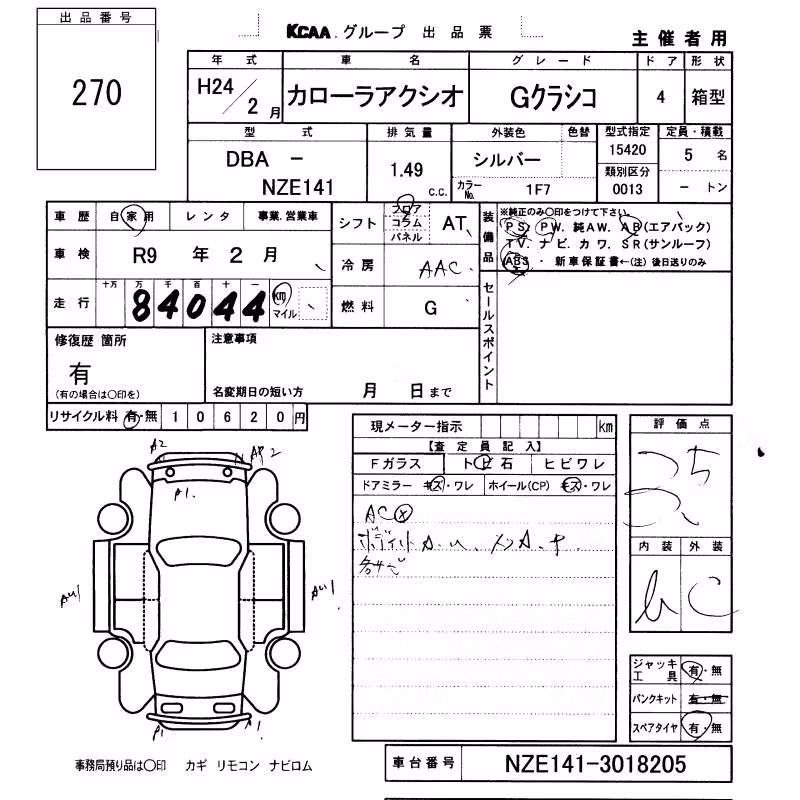 出品番号
270
KCAA.グループ 出品票
主催者用
年式 車名 グレード ドア 形状
H24/2月 カローラアクシオ Gクラシコ 4 箱型
型式 排気量 外装色 色替 型式指定 定員・積載
DBA - NZE141 1.49 c.c. シルバー 15420 5名
類別区分
カラーNo. 1F7 0013 ートン
車歴 自家用 レンタ 事業.営業車
シフト フロア コラム パネル AT
装備品 ※純正のみ〇印をつけて下さい。
PS. PW. 純AW. AB(エアバック)
TV. ナビ. カワ. SR(サンルーフ)
ABS・新車保証書←(注)後日送りのみ
車検 R9年2月
冷房 AAC
走行 十万 万 千 百 十 一
84044 km マイル
燃料 G
セールスポイント
修復歴 箇所
有
(有の場合は〇印を)
注意事項
名変期日の短い方 月 日まで
リサイクル料 有・無 10620円
現メーター指示 km
【査定員記入】
Fガラス トビ石 ヒビワレ
ドアミラー キズ・ワレ ホイール(CP) キズ・ワレ
AC
評価点
内装 外装
C
A2
A1.
P1
ジャッキ工具 有・無
パンクキット 有・無
スペアタイヤ 有・無
事務局預り品は〇印 カギ リモコン ナビロム
車台番号 NZE141-3018205